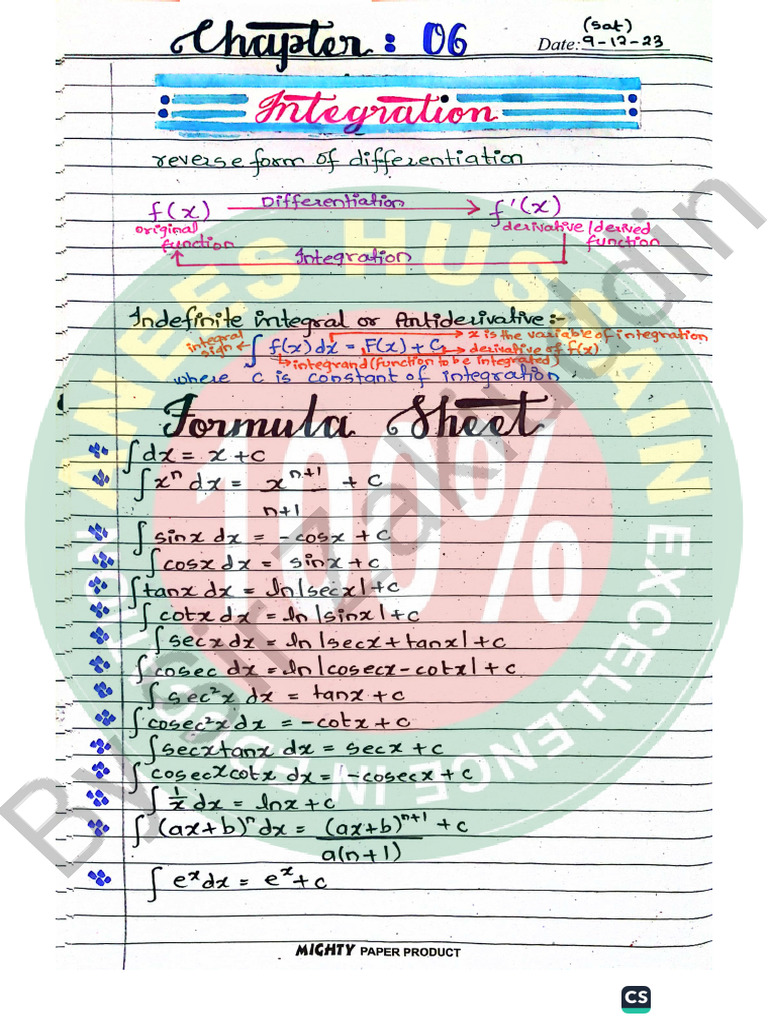 Chapter : 06
(sat)
Date: 9-12-23
Integration
reverse form of differentiation
f(x) Differentiation f'(x)
original function
derivative/derived function
Integration
Indefinite integral or Antiderivative:-
integral sign
x is the variable of integration
∫ f(x) dx = F(x) + C
derivative of f(x)
integrand (function to be integrated)
where c is constant of integration
Formula Sheet
∫dx = x + c
∫x^n dx = x^(n+1)/(n+1) + c
∫sinx dx = -cosx + c
∫cosx dx = sinx + c
∫tanx dx = ln|secx| + c
∫cotx dx = ln|sinx| + c
∫secx dx = ln|secx+tanx| + c
∫cosec dx = ln|cosecx-cotx| + c
∫sec²x dx = tanx + c
∫cosec²x dx = -cotx + c
∫secxtanx dx = secx + c
∫cosecxcotx dx = -cosecx + c
∫1/x dx = lnx + c
∫(ax+b)^n dx = (ax+b)^(n+1)/a(n+1) + c
∫e^x dx = e^x + c
MIGHTY PAPER PRODUCT
CS
By Sir Zakiuddin
ANEES HUSSAIN
100%
EXCELLENCE IN EDUCATION